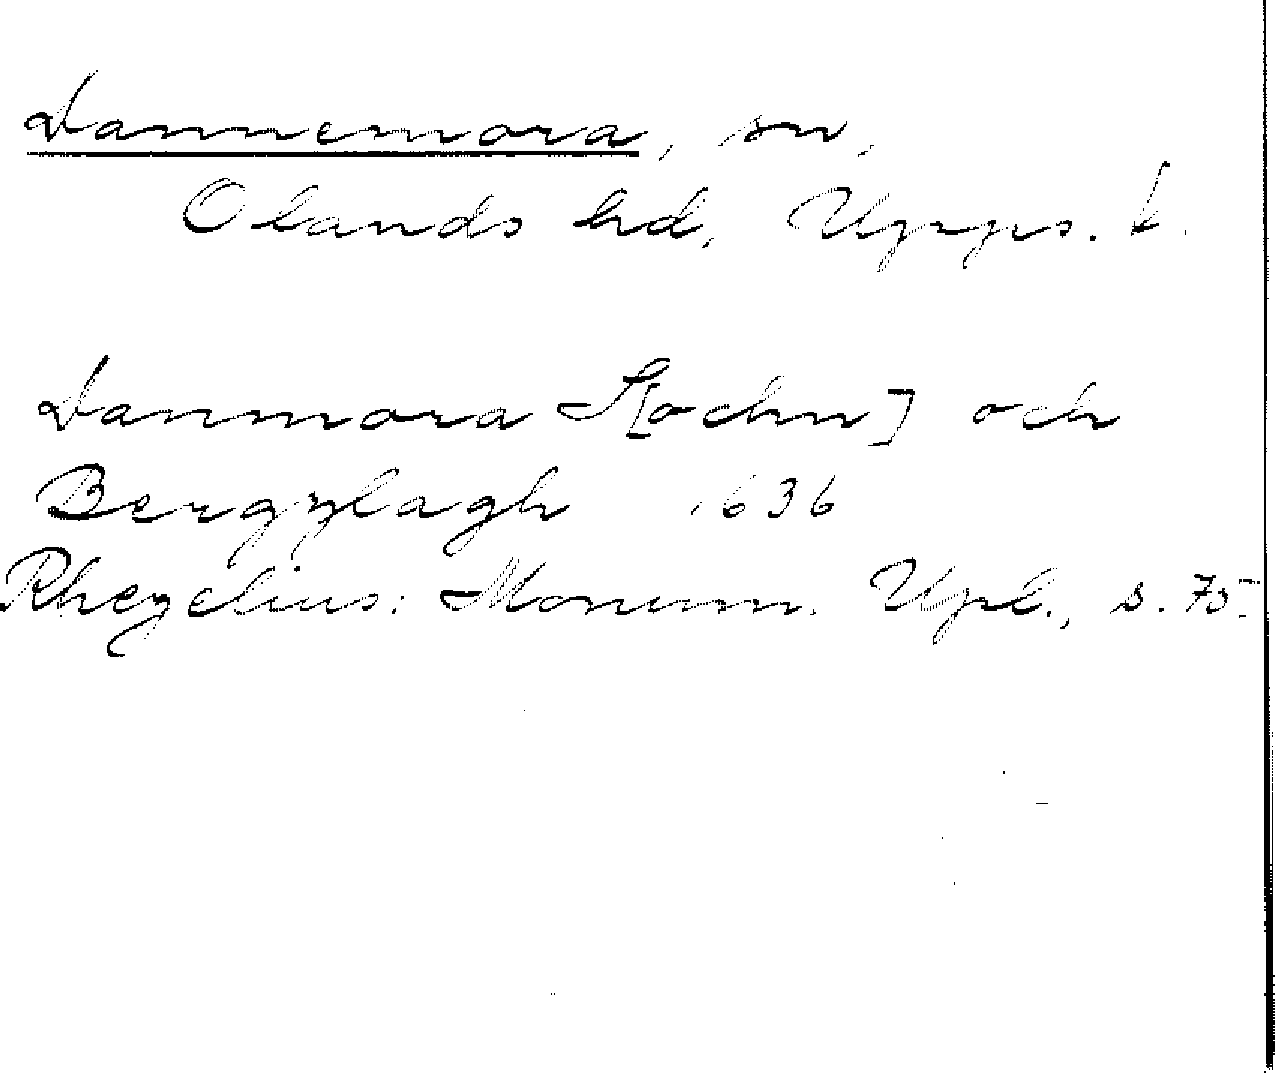 Dannemora, sn,
Olands hd, Upps. l.
Danmora S[ochn] och
Bergzlagh 1636
Rhezelius: Monum. Upl., s. 75.